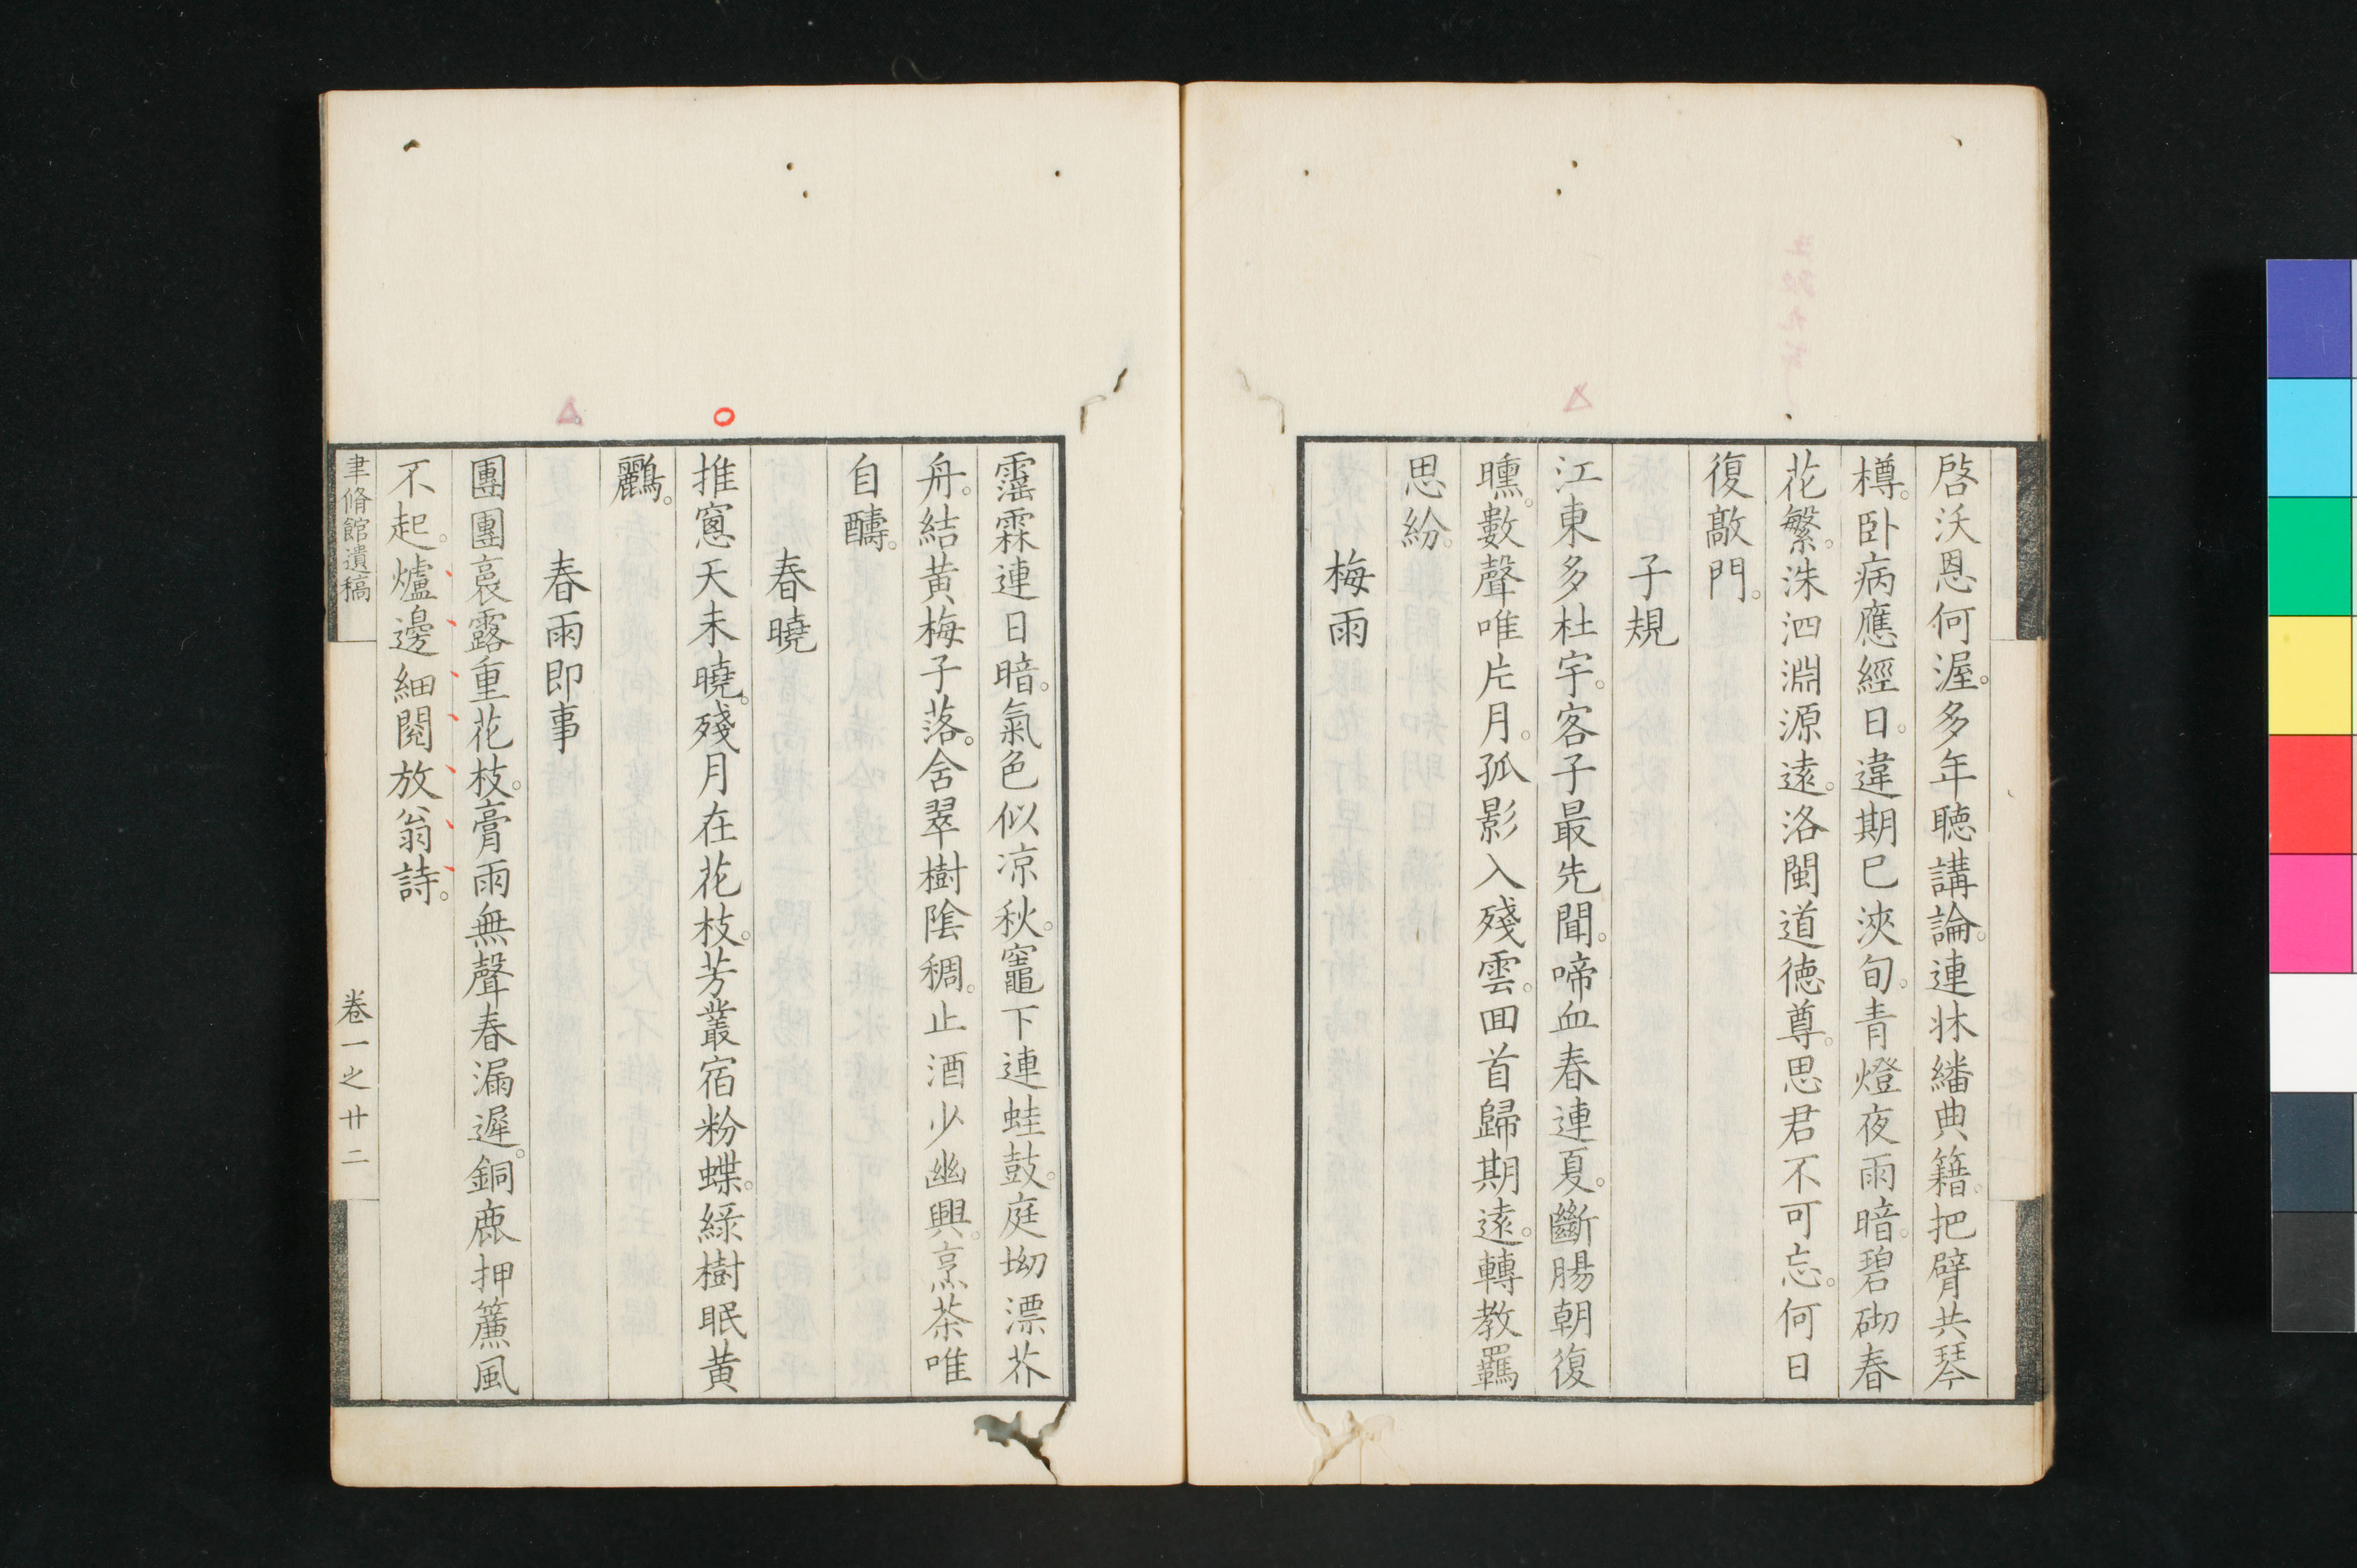 啓沃恩何渥。多年聴講論。連牀繙典籍。把臂共琴
樽。卧病應經日。違期巳浹旬。青燈夜雨暗。碧砌春
花繁。洙泗淵源遠。洛閩道徳尊。思君不可忘。何日
復敲門。
子規
江東多杜宇。客子最先聞。啼血春連夏。斷腸朝復
曛。數聲唯片月。孤影入殘雲。囬首歸期遠。轉教羈
思紛。
梅雨
霪霖連日暗。氣色似凉秋。竈下連蛙鼓。庭坳漂芥
舟。結黄梅子落。舍翠樹陰稠。止酒少幽興。烹茶唯
自醻。
春曉
推窻天未曉。殘月在花枝。芳叢宿粉蝶。緑樹眠黄
鸝。
春雨即事
團團裛露重花枝。膏雨無聲春漏遲。銅鹿押簾風
不起。爐邊細閲放翁詩。
聿脩館遺稿
卷一之廿二